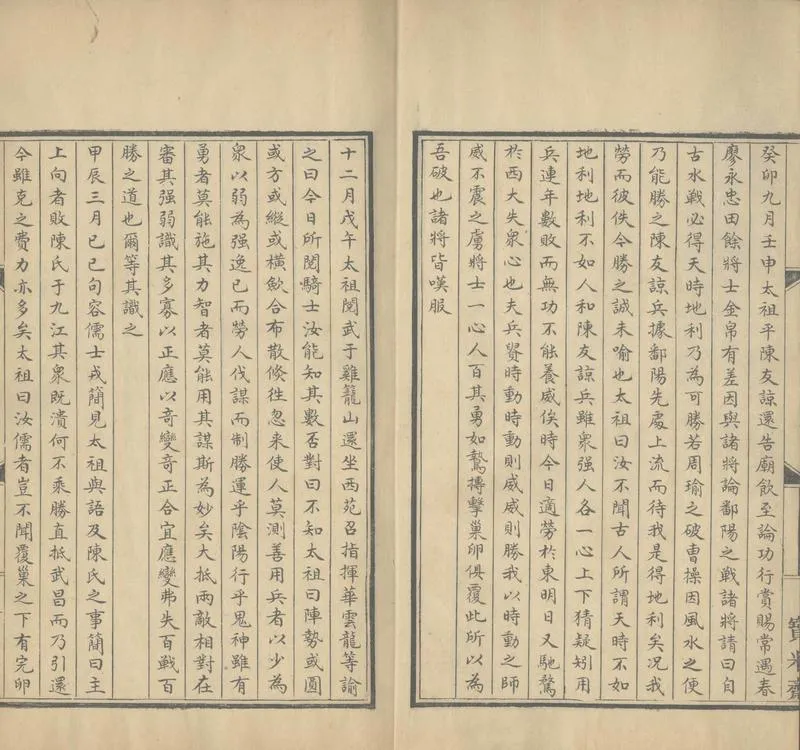 癸卯九月壬申太祖平陳友諒還告廟飲至論功行賞賜常遇春
廖永忠田餘將士金帛有差因與諸將論鄱陽之戰諸將請曰自
古水戰必得天時地利乃為可勝若周瑜之破曹操因風水之便
乃能勝之陳友諒兵據鄱陽先處上流而待我是得地利矣況我
勞而彼佚今勝之誠未喻也太祖曰汝不聞古人所謂天時不如
地利地利不如人和陳友諒兵雖衆强人各一心上下猜疑矧用
兵連年數敗而無功不能養威俟時今日適勞於東明日又馳騖
於西大失衆心也夫兵貴時動時動則威威則勝我以時動之師
威不震之虜將士一心人百其勇如鷙搏擊巢卵俱覆此所以為
吾破也諸將皆嘆服
寶米齋
十二月戊午太祖閱武于雞籠山還坐西苑召指揮華雲龍等諭
之曰今日所閱騎士汝能知其數否對曰不知太祖曰陣勢或圓
或方或縱或橫歛合布散倏徃忽來使人莫測善用兵者以少為
衆以弱為强逸已而勞人伐謀而制勝運乎陰陽行乎鬼神雖有
勇者莫能施其力智者莫能用其謀斯為妙矣大抵兩敵相對在
審其强弱識其多寡以正應以奇變奇正合宜應變弗失百戰百
勝之道也爾等其識之
甲辰三月已巳句容儒士戎簡見太祖與語及陳氏之事簡曰主
上向者敗陳氏于九江其衆既潰何不乘勝直抵武昌而乃引還
今雖克之費力亦多矣太祖曰汝儒者豈不聞覆巢之下有完卵